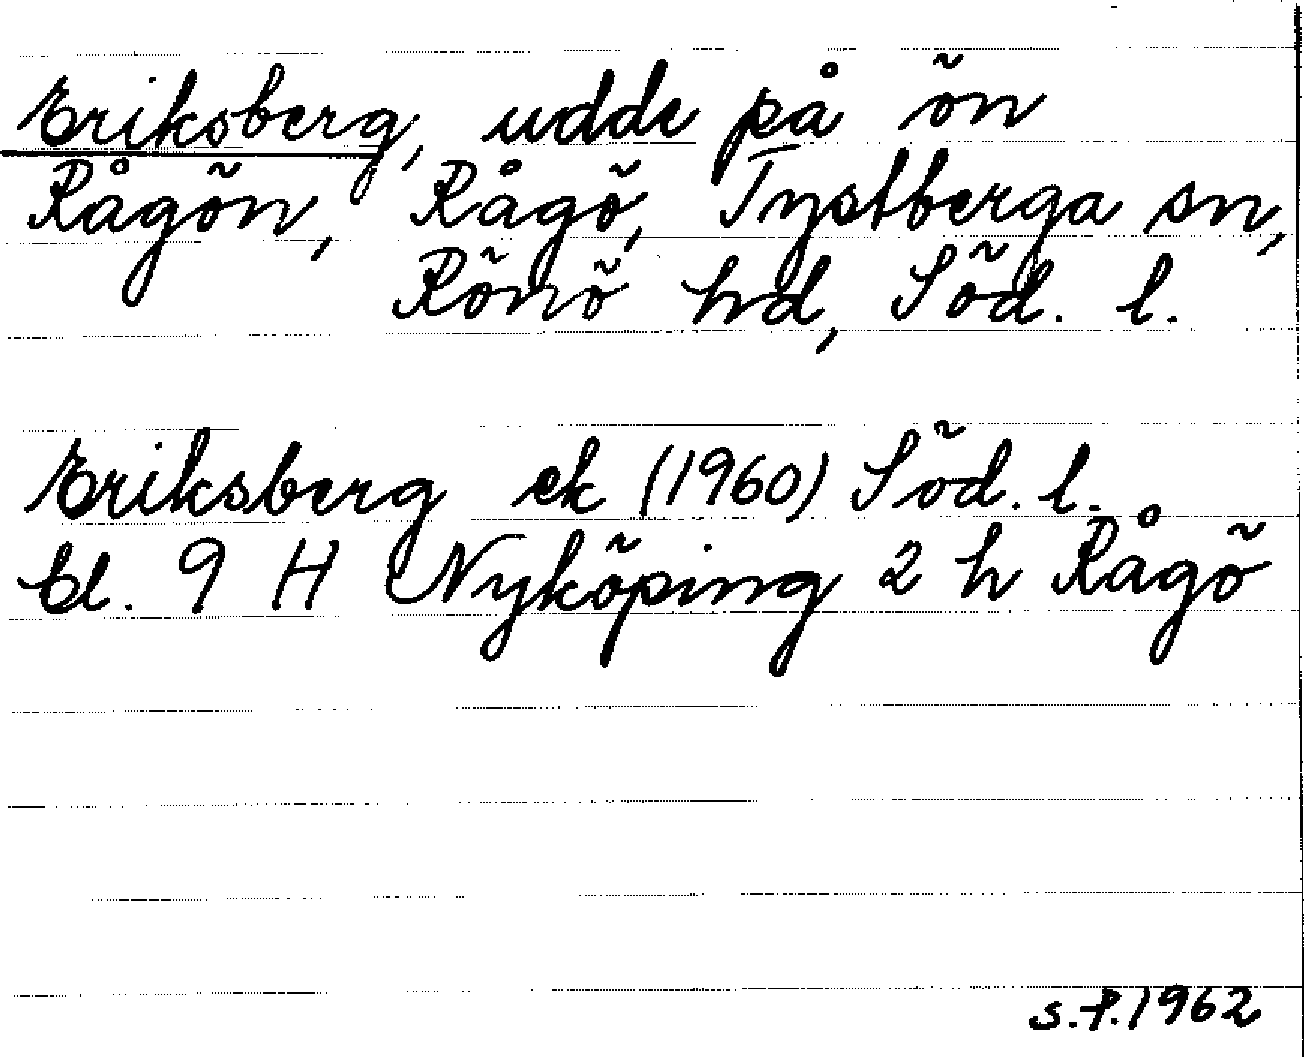 Eriksberg, udde på ön
Rågön, Rågö, Tystberga sn,
Rönö hd, Söd. l.
Eriksberg ek (1960) Söd. l.
bl. 9 H Nyköping 2 h Rågö
S.P.1962